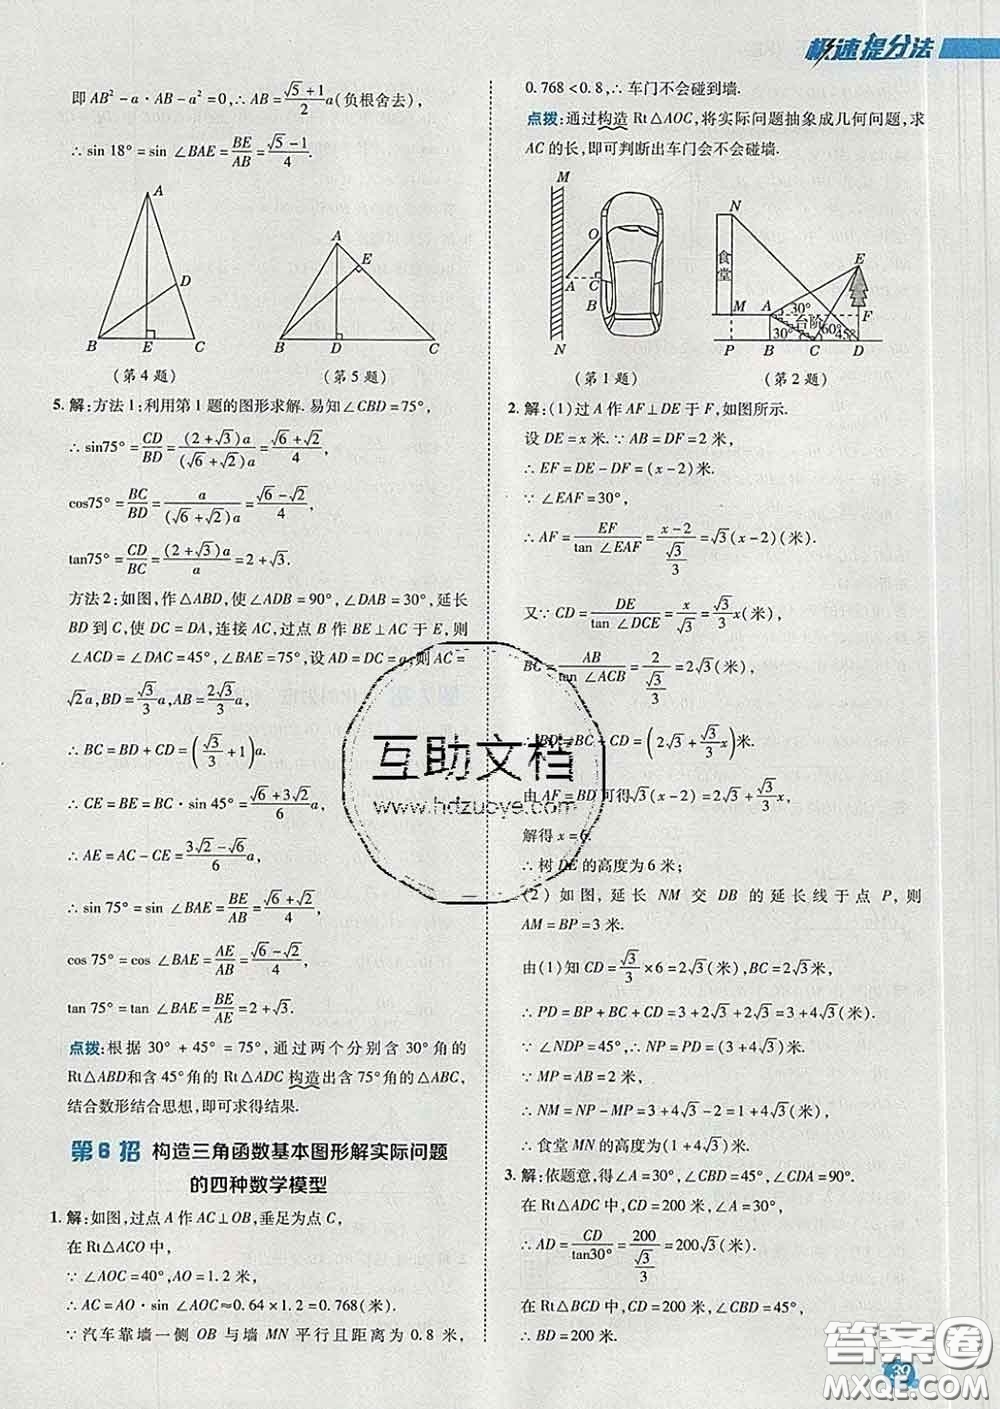 极速提分法
即 AB²-a·AB-a²=0,∴AB=(√5+1)/2 a(负根舍去),
∴sin 18°=sin ∠BAE=BE/AB=(√5-1)/4.
A
D
B E C
(第 4 题)
A
E
B D C
(第 5 题)
5. 解:方法1:利用第1题的图形求解. 易知∠CBD=75°,
∴sin75°=CD/BD=(2+√3)a/(√6+√2)a=(√6+√2)/4,
cos75°=BC/BD=a/(√6+√2)a=(√6-√2)/4,
tan75°=CD/BC=(2+√3)a/a=2+√3.
方法2:如图,作△ABD,使∠ADB=90°,∠DAB=30°,延长
BD到C,使DC=DA,连接AC,过点B作BE⊥AC于E,则
∠ACD=∠DAC=45°,∠BAE=75°,设AD=DC=a,则AC=
√2a,BD=√3/3 a,AB=2√3/3 a,
∴BC=BD+CD=(√3/3+1)a.
∴CE=BE=BC·sin 45°=(√6+3√2)/6 a,
∴AE=AC-CE=(3√2-√6)/6 a,
∴sin 75°=sin ∠BAE=BE/AB=(√6+√2)/4,
cos 75°=cos ∠BAE=AE/AB=(√6-√2)/4,
tan 75°=tan ∠BAE=BE/AE=2+√3.
点拨:根据 30°+45°=75°,通过两个分别含 30°角的
Rt△ABD和含45°角的Rt△ADC构造出含75°角的△ABC,
结合数形结合思想,即可求得结果.
第6招 构造三角函数基本图形解实际问题
的四种数学模型
1. 解:如图,过点A作AC⊥OB,垂足为点C,
在Rt△ACO中,
∵∠AOC=40°,AO=1.2米,
∴AC=AO·sin ∠AOC≈0.64×1.2=0.768(米).
∵汽车靠墙一侧 OB 与墙 MN 平行且距离为 0.8 米,
0.768<0.8,∴车门不会碰到墙.
点拨:通过构造Rt△AOC,将实际问题抽象成几何问题,求
AC的长,即可判断出车门会不会碰墙.
M
O
A C
B
N
(第 1 题)
N
食堂
E
M A 30° F
台阶
30° 60° 45°
P B C D
(第 2 题)
2. 解:(1)过A作AF⊥DE于F,如图所示.
设DE=x米. ∵AB=DF=2米,
∴EF=DE-DF=(x-2)米.
∵∠EAF=30°,
∴AF=EF/tan ∠EAF=(x-2)/(√3/3)=√3(x-2)(米).
又∵CD=DE/tan ∠DCE=x/√3=√3/3 x(米),
BC=AB/tan ∠ACB=2/(√3/3)=2√3(米),
∴BD=BC+CD=(2√3+√3/3 x)米.
由AF=BD可得√3(x-2)=2√3+√3/3 x,
解得x=6.
∴树DE的高度为6米;
(2)如图,延长 NM 交 DB 的延长线于点 P,则
AM=BP=3米.
由(1)知CD=√3/3×6=2√3(米),BC=2√3米,
∴PD=BP+BC+CD=3+2√3+2√3=3+4√3(米).
∵∠NDP=45°,∴NP=PD=(3+4√3)米.
∵MP=AB=2米,
∴NM=NP-MP=3+4√3-2=1+4√3(米),
∴食堂MN的高度为(1+4√3)米.
3. 解:依题意,得∠A=30°,∠CBD=45°,∠CDA=90°.
在Rt△ADC中,CD=200米,∠A=30°,
∴AD=CD/tan30°=200/(√3/3)=200√3(米).
在Rt△BCD中,CD=200米,∠CBD=45°,
∴BD=200米.
互助文档
www.hdzuoye.com
39
答案圈
MXQE.COM